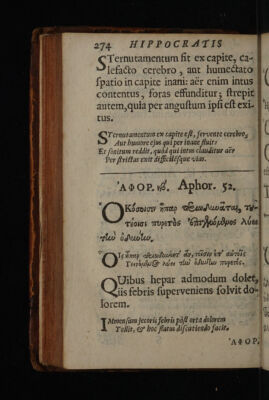 274 HIPPOCRATIS
STernutamentum fit ex capite, ca-
lefacto cerebro, aut humectato
spatio in capite inani: aër enim intus
contentus, foras effunditur; strepit
autem, quia per angustum ipsi est exi-
tus.
STernutamentum ex capite est, fervente cerebro,
Aut humore ejus qui per inane fluit:
Et sonitum reddit, quòd qui intus clauditur aër
Per strictas exit difficilesque vias.
ἈΦΟΡ. νβ. Aphor. 52.
ὉΚόσοισιν ἧπαρ
πυρετὸς λύει
τὴν ὀδύνην.
ἧπαρ
πυρετός.
QUibus hepar admodum dolet,
iis febris superveniens solvit do-
lorem.
IMmensum jecoris febris pòst orta dolorem
Tollit, & hoc flatus discutiendo facit.
ἈΦΟΡ.